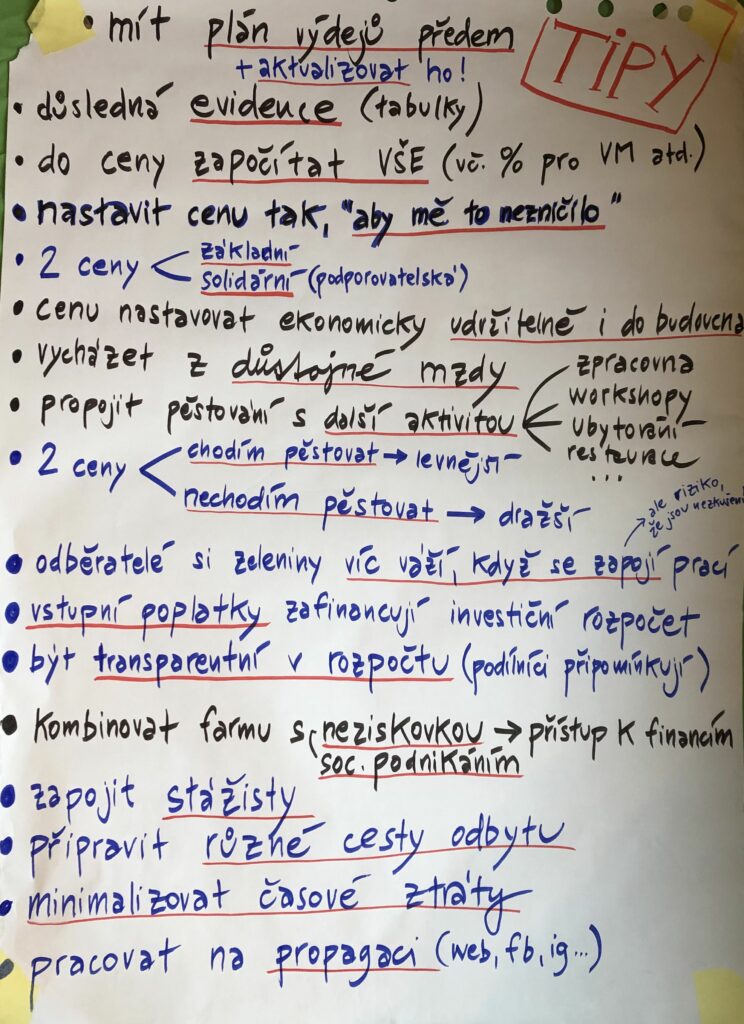 • mít plán výdejů předem
+ aktualizovat ho!
TIPY
• důsledná evidence (tabulky)
• do ceny započítat VŠE (vč. % pro VM atd.)
• nastavit cenu tak, "aby mě to nezničilo"
• 2 ceny < základní
solidární (podporovatelská)
• cenu nastavovat ekonomicky udržitelně i do budoucna
• vycházet z důstojné mzdy
• propojit pěstování s další aktivitou
zpracovna
workshopy
ubytování
restaurace
...
• 2 ceny < chodím pěstovat → levnější
nechodím pěstovat → dražší
ale riziko,
že jsou nezkušení
• odběratelé si zeleniny víc váží, když se zapojí prací
• vstupní poplatky zafinancují investiční rozpočet
• být transparentní v rozpočtu (podílníci připomínkují)
• kombinovat farmu s neziskovkou → přístup k financím
soc. podnikáním
• zapojit stážisty
• připravit různé cesty odbytu
• minimalizovat časové ztráty
• pracovat na propagaci (web, fb, ig...)